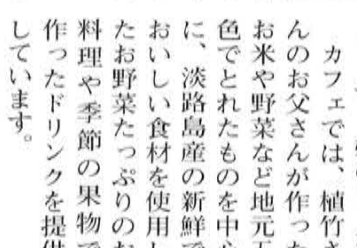 カフェでは、植竹さ
んのお父さんが作った
お米や野菜など地元
色でとれたものを中
に、淡路島産の新鮮で
おいしい食材を使用し
たお野菜たっぷりのお
料理や季節の果物で
作ったドリンクを提供
しています。